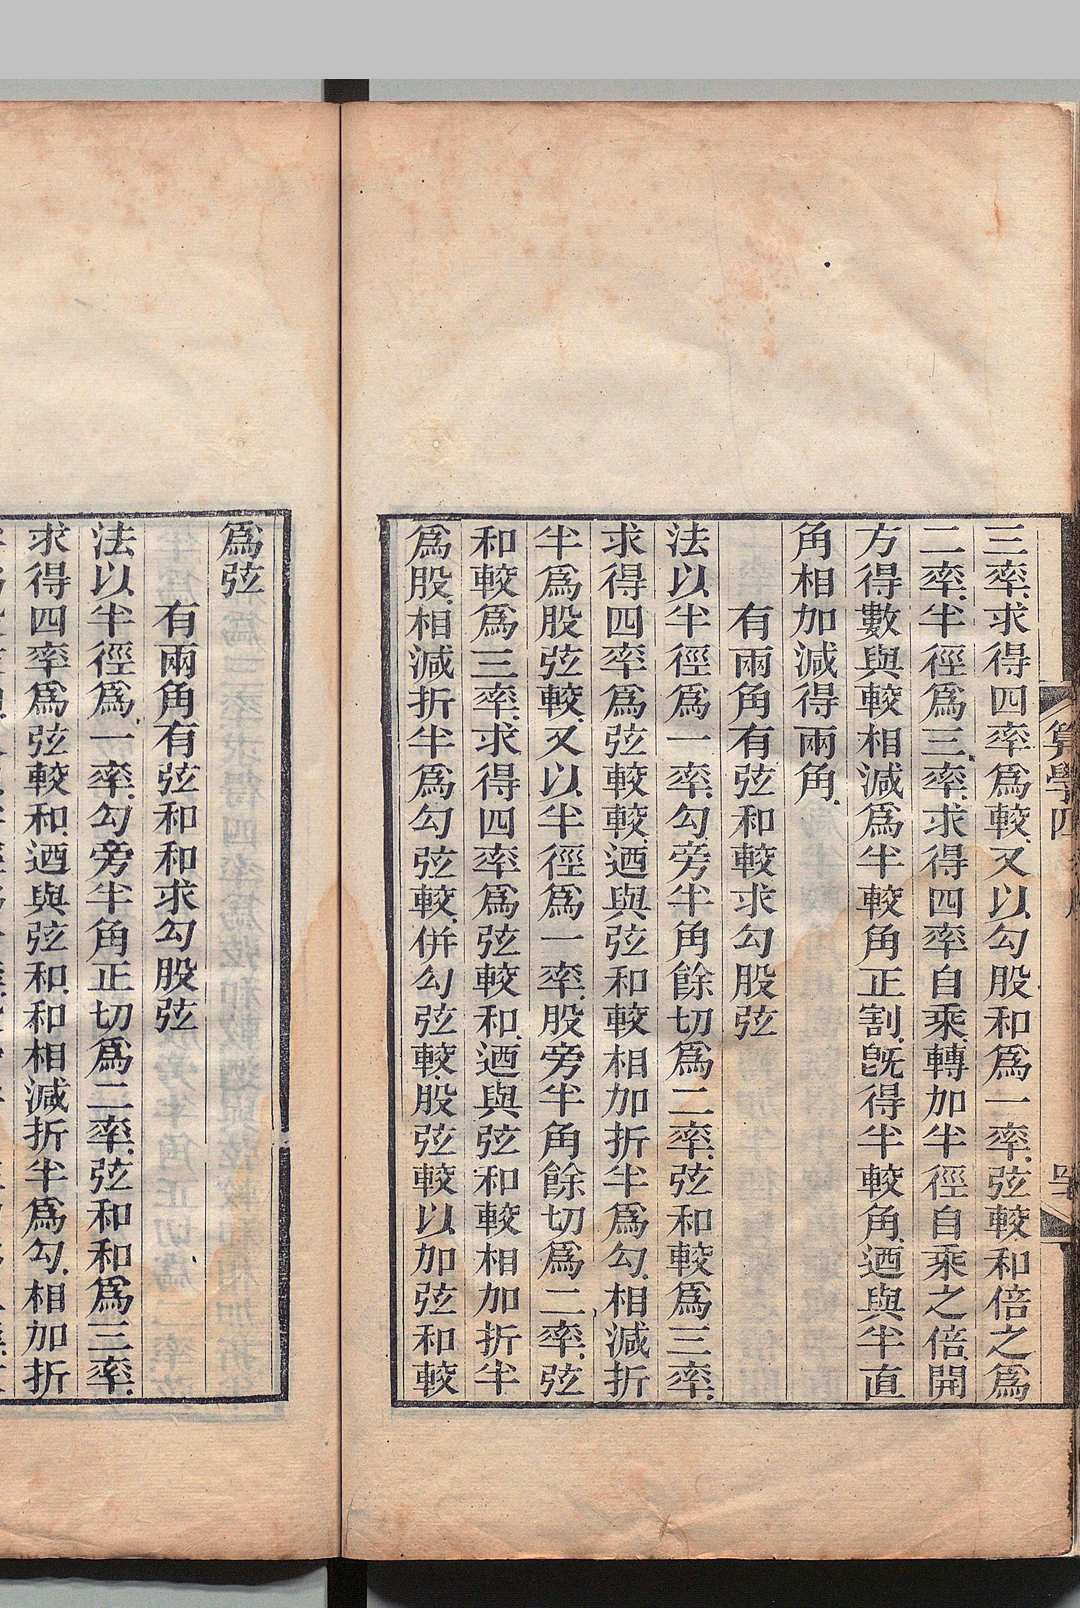 三率求得四率爲較又以勾股和爲一率弦較和倍之爲
二率半徑爲三率求得四率自乘轉加半徑自乘之倍開
方得數與較相減爲半較角正割旣得半較角迺與半直
角相加減得兩角
有兩角有弦和較求勾股弦
法以半徑爲一率勾旁半角餘切爲二率弦和較爲三率
求得四率爲弦較較迺與弦和較相加折半爲勾相減折
半爲股弦較又以半徑爲一率股旁半角餘切爲二率弦
和較爲三率求得四率爲弦較和迺與弦和較相加折半
爲股相減折半爲勾弦較併勾弦較股弦較以加弦和較
爲弦
有兩角有弦和和求勾股弦
法以半徑爲一率勾旁半角正切爲二率弦和和爲三率
求得四率爲弦較和迺與弦和和相減折半爲勾相加折
算學四